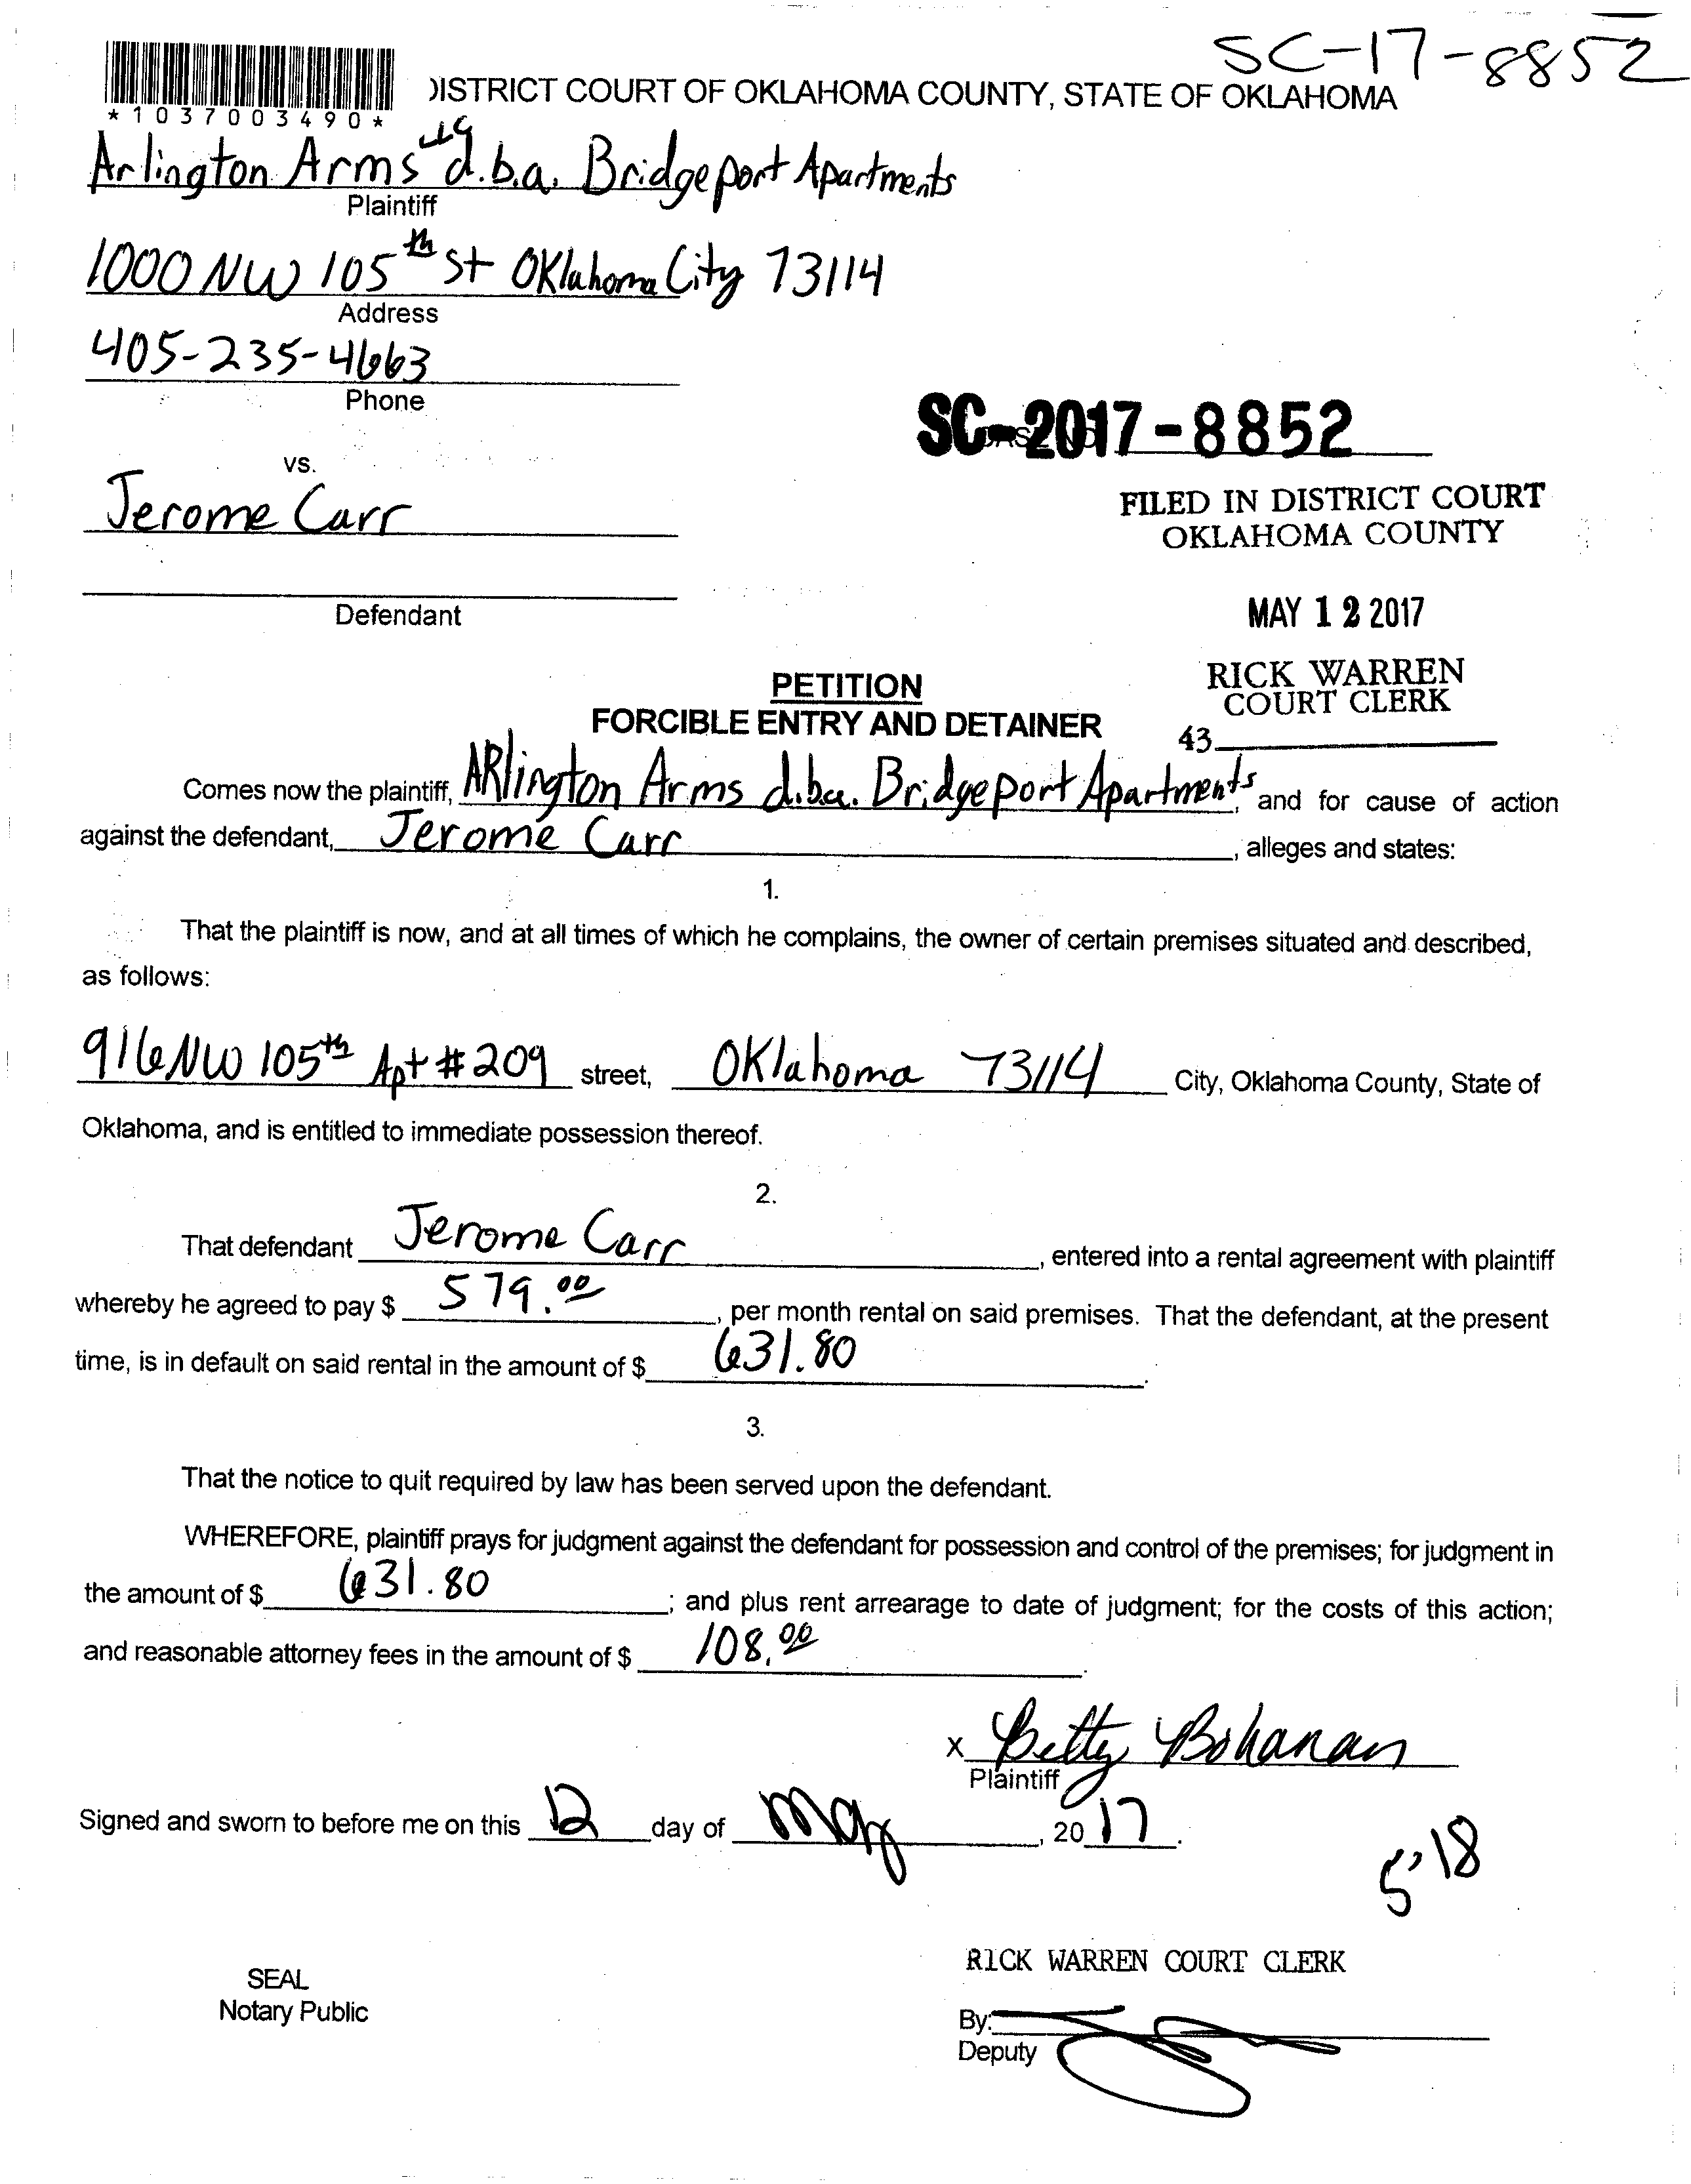 SC-17-8852
DISTRICT COURT OF OKLAHOMA COUNTY, STATE OF OKLAHOMA
*1037003490*
Arlington Arms d.b.a. Bridgeport Apartments
Plaintiff
1000 NW 105th St Oklahoma City 73114
Address
405-235-4663
Phone
SC-2017-8852
vs.
Jerome Carr
FILED IN DISTRICT COURT
OKLAHOMA COUNTY
Defendant
MAY 12 2017
PETITION
RICK WARREN
COURT CLERK
FORCIBLE ENTRY AND DETAINER
43
Comes now the plaintiff, ARlington Arms d.b.a. Bridgeport Apartments, and for cause of action
against the defendant, Jerome Carr, alleges and states:
1.
That the plaintiff is now, and at all times of which he complains, the owner of certain premises situated and described,
as follows:
916 NW 105th Apt #209 street, Oklahoma 73114 City, Oklahoma County, State of
Oklahoma, and is entitled to immediate possession thereof.
2.
That defendant Jerome Carr, entered into a rental agreement with plaintiff
whereby he agreed to pay $ 579.00, per month rental on said premises. That the defendant, at the present
time, is in default on said rental in the amount of $ 631.80.
3.
That the notice to quit required by law has been served upon the defendant.
WHEREFORE, plaintiff prays for judgment against the defendant for possession and control of the premises; for judgment in
the amount of $ 631.80; and plus rent arrearage to date of judgment; for the costs of this action;
and reasonable attorney fees in the amount of $ 108.00.
x Betty Bohanan
Plaintiff
Signed and sworn to before me on this 12 day of May, 2017.
5-18
RICK WARREN COURT CLERK
SEAL
Notary Public
By:
Deputy